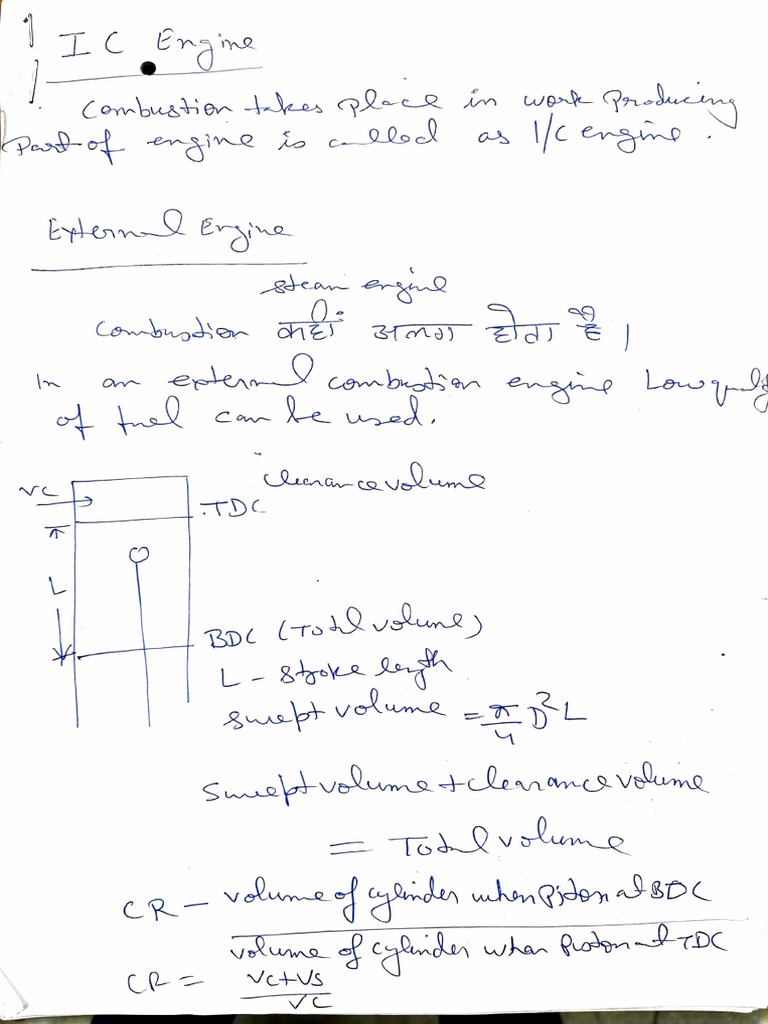 IC Engine
Combustion takes place in work producing
Part of engine is called as I/C engine.
External Engine
stean engine
Combustion कहीं अलग होता है।
In an external combustion engine Low qualy
of fuel can be used.
clearance volume
VC
TDC
L
BDC (Total volume)
L - stroke length
swept volume = π/4 D²L
Swept volume + clearance volume
= Total volume
CR - volume of cylinder when Piston at BDC
volume of cylinder when Piston at TDC
CR = VC+VS
VC